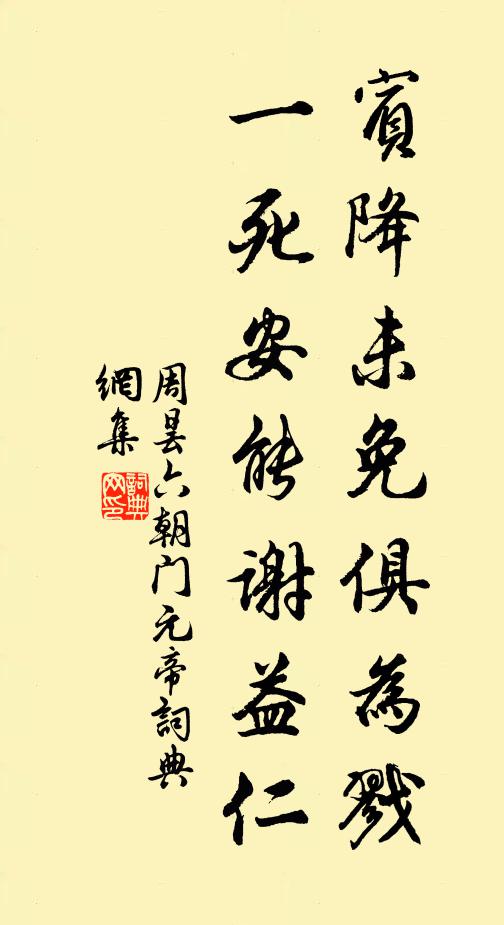 賓降未免俱為戮
一死安能謝益仁
周曇六朝门元帝詞典
網集
詞典
网印